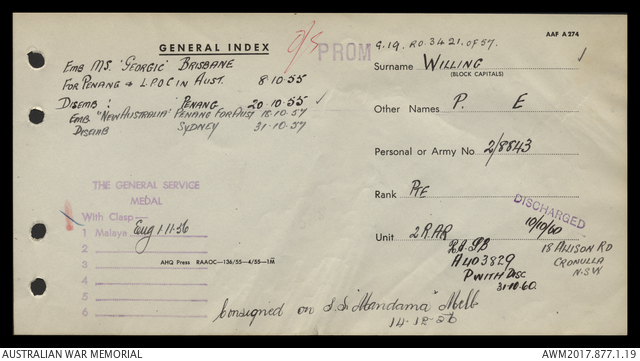 GENERAL INDEX
EMB MS. 'GEORGIC' BRISBANE
FOR PENANG & L.P.O.C IN AUST. 8.10.55
DISEMB: PENANG 20.10.55
EMB "NEW AUSTRALIA" PENANG FOR AUST 18.10.57
DISEMB SYDNEY 31.10.57
THE GENERAL SERVICE
MEDAL
With Clasp
1 Malaya Eng 1.11.56
2
3
4
5
6
AHQ Press RAAOC—136/55—4/55—1M
Consigned on S.S. "Mandama" Melb
14.12.56
PROM
AAF A 274
G.19. RO.3421.OF 57.
Surname WILLING
(BLOCK CAPITALS)
Other Names P. E
Personal or Army No. 2/8843
Rank PTE
DISCHARGED
10/10/60
Unit 2 RAR
18 ALLISON RD
CRONULLA
N.S.W
A403829
P WITH DISC
31.10.60